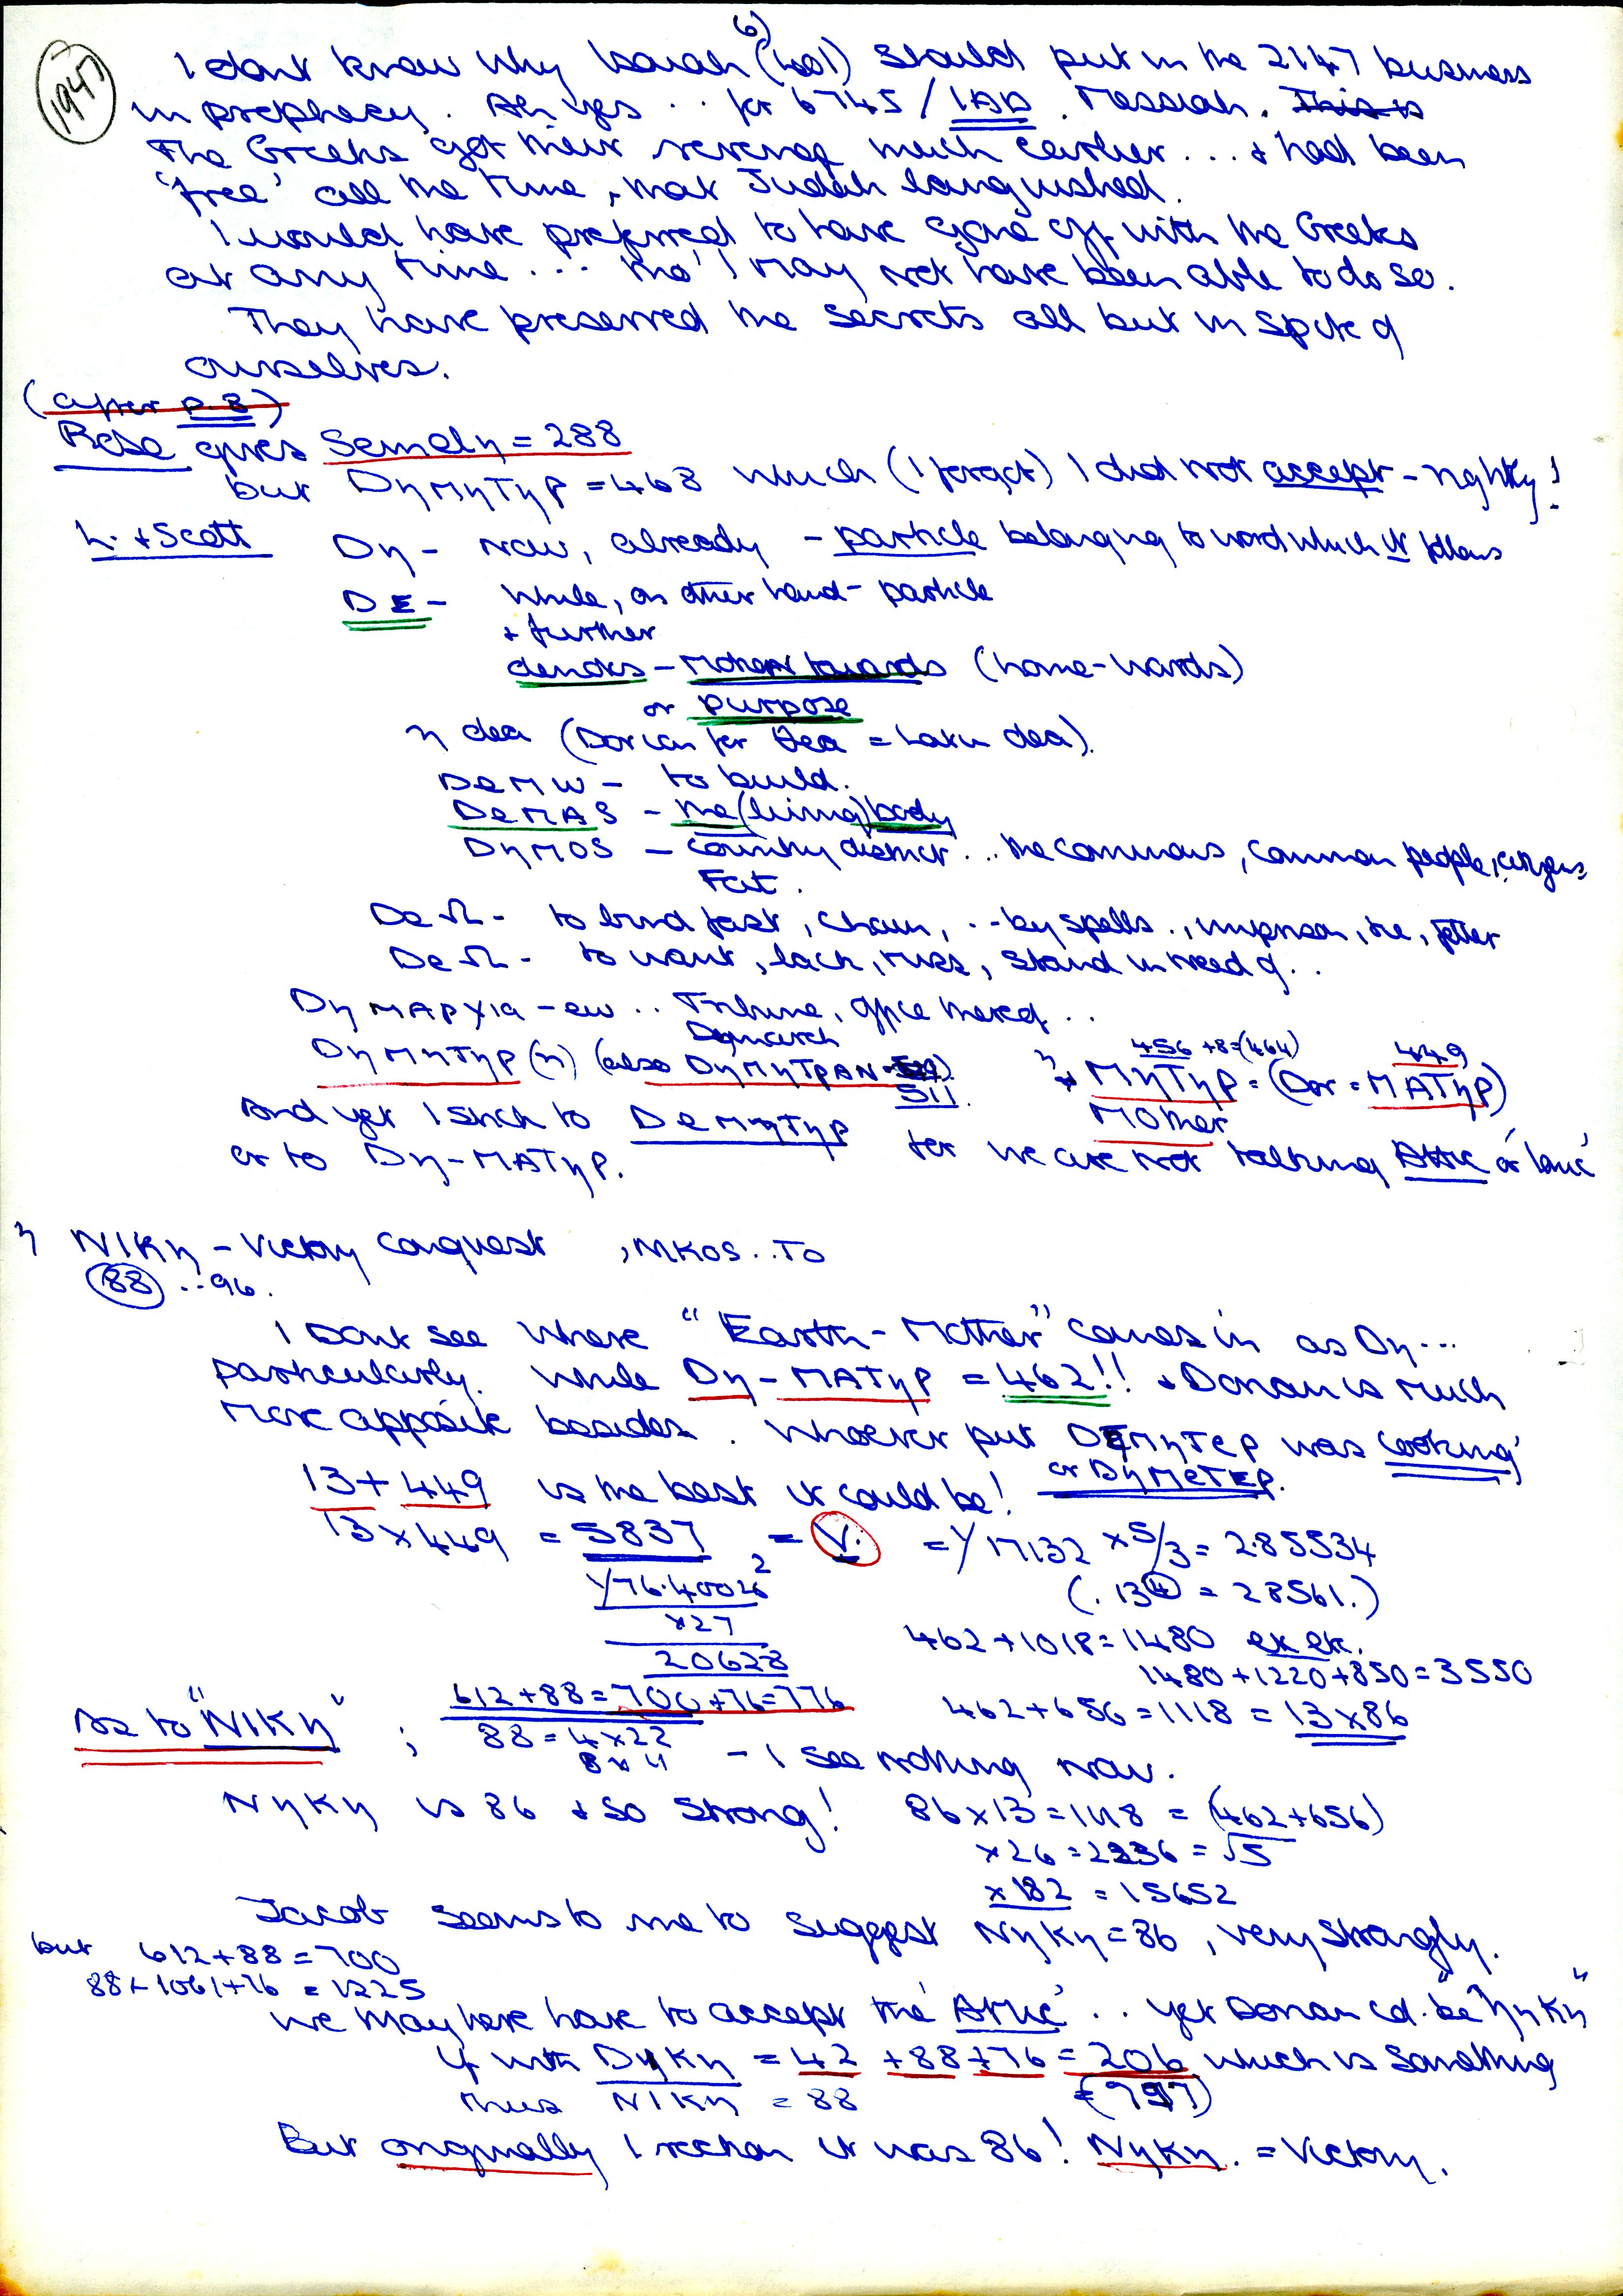 6)
1947
I dont know why Isaiah (hol) should put in the 2147 business
in prophecy. Ah yes .. for 6745 / 1AD. Messiah. This is
The Greeks got their revenge much earlier ... + had been
'free' all the time, that Judah languished.
I would have preferred to have gone off with the Greeks
at any time ... tho' I may not have been able to do so.
They have preserved the secrets all but in spite of
ourselves.
(after p. 8)
Rose gives Semelη = 288
but DηMηTηP = 468 which (I forget) I did not accept - rightly!
L. + Scott Dη - now, already - particle belonging to word which it follows
DE - while, on other hand - particle
+ further
denotes - Motion towards (home-wards)
or purpose
η dea (Dorian for thea = Latin dea).
DeMW - to build.
DeMAS - the (living) body
DηMOS - country district ... the commons, common people, citizens
Fat.
DeΩ - to bind fast, chain, .. by spells .., imprison, tie, fetter
DeΩ - to want, lack, miss, stand in need of ..
DηMAPXia - ew .. Tribune, office thereof ..
Demarch
DηMηTηP (η) (also DηMηTPAN 511)
η + MηTηP = (Dor = MATηP)
456 +8=(464) 449
Mother
And yet I stick to DeMηTηP for we are not talking Attic or 'Ionic'
or to Dη-MATηP.
η NIKη - Victory conquest , NIKOS .. To
88 .. 96.
I Dont see where "Earth-Mother" comes in as Dη...
particularly. While Dη-MATηP = 462!! + Dorian is much
more apposite besides. Whoever put DEMηTeP was 'cooking'
or DηMeTEP.
13 + 449 is the best it could be!
13 x 449 = 5837 = V. = √17132 x 5/3 = 2.85534
√76.4002² (. 13④ = 28561.)
x27
20628
462 + 1018 = 1480 ek ek.
1480 + 1220 + 850 = 3550
462 + 656 = 1118 = 13 x 86
As to "NIKη" ; 612 + 88 = 700 + 76 = 776
88 = 4 x 22
8 x 11 - I see nothing now.
NηKη is 86 + so strong! 86 x 13 = 1118 = (462 + 656)
x 26 = 2236 = √5
x 182 = 15652
Jacob seems to me to suggest NηKη = 86, very strongly.
but 612 + 88 = 700
88 + 1061 + 76 = 1225
We may here have to accept the 'Attic' .. yet Dorian cd. be "NηKη"
if with DηKη = 42 + 88 + 76 = 206 which is something
thus NIKη = 88
But originally I reckon it was 86! NηKη. = Victory.